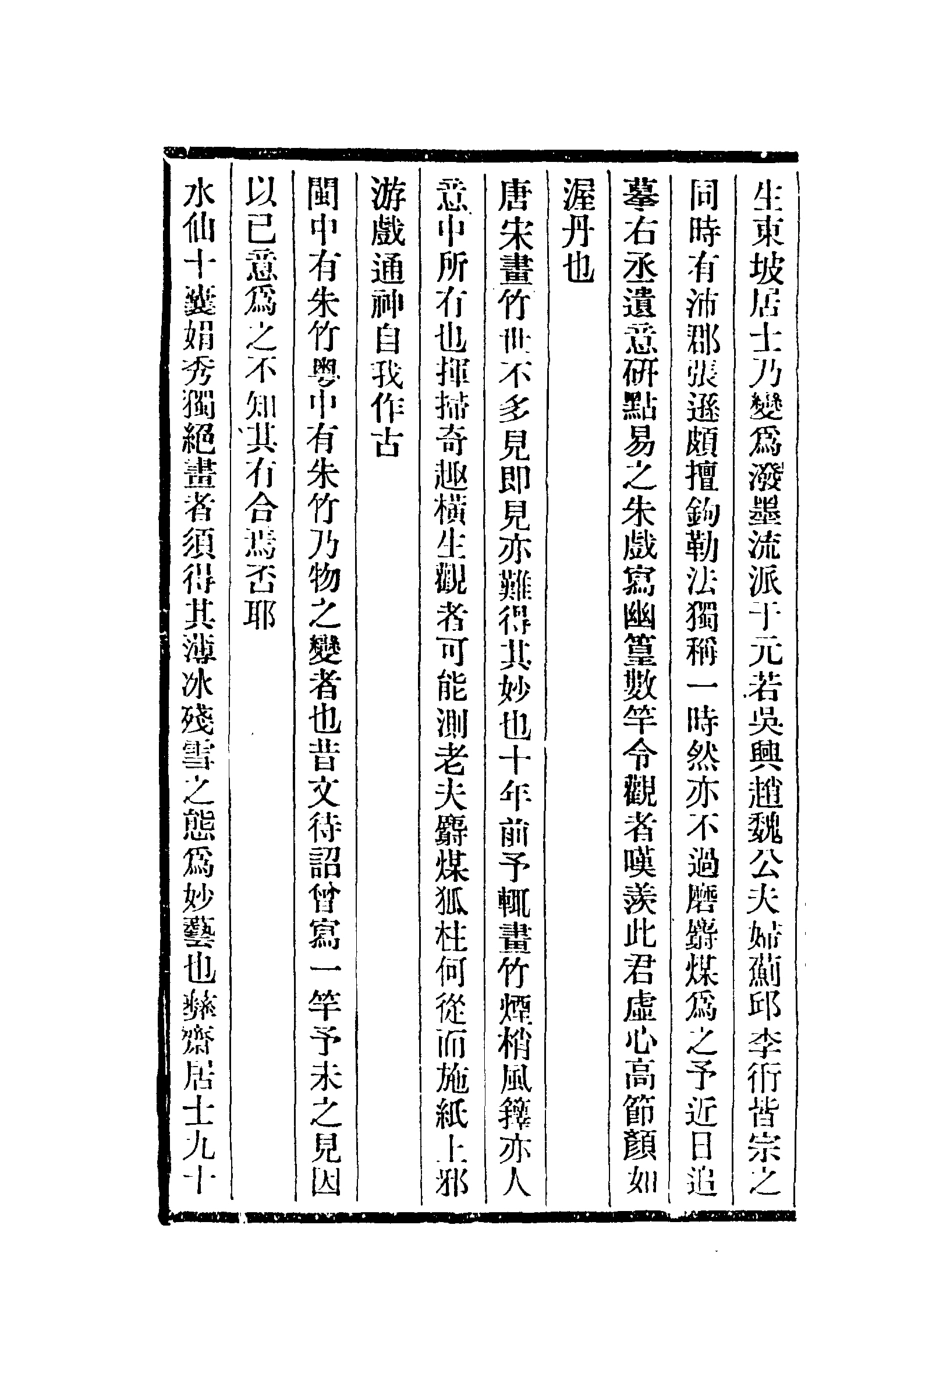 生東坡居士乃變爲潑墨流派于元若吳興趙魏公夫婦薊邱李衎皆宗之
同時有沛郡張遜頗擅鉤勒法獨稱一時然亦不過磨麝煤爲之予近日追
摹右丞遺意研點易之朱戲寫幽篁數竿令觀者嘆羨此君虛心高節顏如
渥丹也
唐宋畫竹世不多見即見亦難得其妙也十年前予輒畫竹煙梢風籜亦人
意中所有也揮掃奇趣橫生觀者可能測老夫麝煤狐柱何從而施紙上邪
游戲通神自我作古
閩中有朱竹粵中有朱竹乃物之變者也昔文待詔曾寫一竿予未之見因
以已意爲之不知其有合焉否耶
水仙十囊娟秀獨絕畫者須得其薄冰殘雪之態爲妙藝也彝齋居士九十